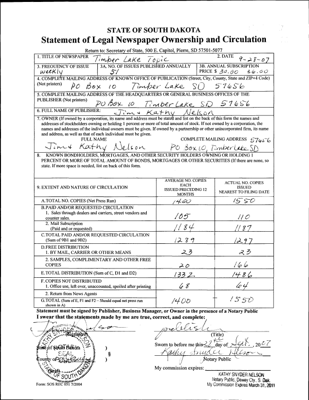 STATE OF SOUTH DAKOTA
Statement of Legal Newspaper Ownership and Circulation
Return to: Secretary of State, 500 E. Capitol, Pierre, SD 57501-5077
1. TITLE OF NEWSPAPER Timber Lake Topic 2. DATE 9-28-07
3. FREQUENCY OF ISSUE weekly
3A. NO. OF ISSUES PUBLISHED ANNUALLY 51
3B. ANNUAL SUBSCRIPTION PRICE $ 30.00
4. COMPLETE MAILING ADDRESS OF KNOWN OFFICE OF PUBLICATION (Street, City, County, State and ZIP+4 Code)
(Not printers) PO Box 10 Timber Lake SD 57656
5. COMPLETE MAILING ADDRESS OF THE HEADQUARTERS OR GENERAL BUSINESS OFFICES OF THE
PUBLISHER (Not printers) PO Box 10 Timber Lake SD 57656
6. FULL NAME OF PUBLISHER: Jim + Kathy Nelson
7. OWNER (If owned by a corporation, its name and address must be stated and list on the back of this form the names and
addresses of stockholders owning or holding 1 percent or more of total amount of stock. If not owned by a corporation, the
names and addresses of the individual owners must be given. If owned by a partnership or other unincorporated firm, its name
and address, as well as that of each individual must be given.
FULL NAME COMPLETE MAILING ADDRESS 57656
Jim + Kathy Nelson PO Box 10, Timber Lake SD
8. KNOWN BONDHOLDERS, MORTGAGES, AND OTHER SECURITY HOLDERS OWNING OR HOLDING 1
PERCENT OR MORE OF TOTAL AMOUNT OF BONDS, MORTGAGES OR OTHER SECURITIES (If there are none, so
state. If more space is needed, list on back of this form.
9. EXTENT AND NATURE OF CIRCULATION
AVERAGE NO. COPIES EACH ISSUED PRECEDING 12 MONTHS
ACTUAL NO. COPIES ISSUED NEAREST TO FILING DATE
A. TOTAL NO. COPIES (Net Press Run) 1400 1550
B. PAID AND/OR REQUESTED CIRCULATION
1. Sales through dealers and carriers, street vendors and
counter sales. 105 110
2. Mail Subscription
(Paid and or requested) 1184 1187
C. TOTAL PAID AND/OR REQUESTED CIRCULATION
(Sum of 9B1 and 9B2) 1289 1297
D. FREE DISTRIBUTION
1. BY MAIL, CARRIER OR OTHER MEANS 23 23
2. SAMPLES, COMPLIMENTARY AND OTHER FREE
COPIES 20 166
E. TOTAL DISTRIBUTION (Sum of C, D1 and D2) 1332 1486
F. COPIES NOT DISTRIBUTED
1. Office use, left over, unaccounted, spoiled after printing 68 64
2. Return from News Agents
G. TOTAL (Sum of E, F1 and F2 – Should equal net press run
shown in A) 1400 1550
Statement must be signed by Publisher, Business Manager, or Owner in the presence of a Notary Public
I swear that the statements made by me are true, correct, and complete:
(Title)
State of South Dakota
Sworn to before me this day of 2007
Notary Public
My commission expires:
KATHY SNYDER NELSON
Notary Public, Dewey Cty. S. Dak.
My Commission Expires March 31, 2011